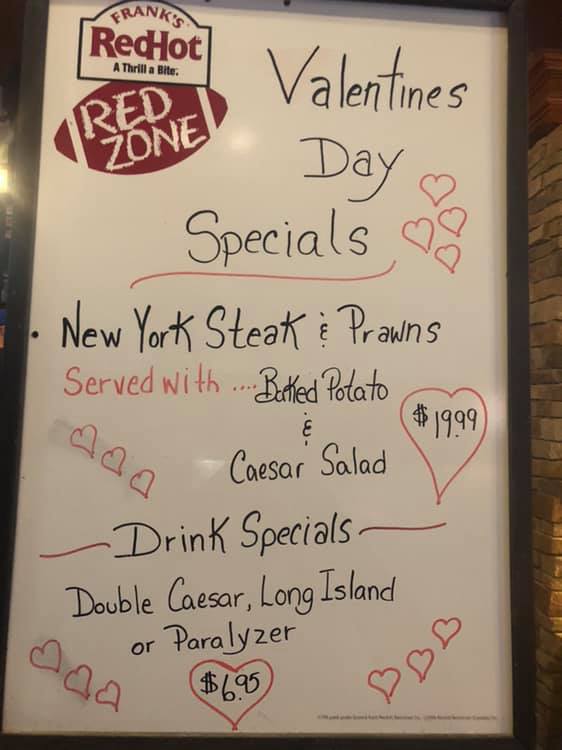 FRANK'S
RedHot
A Thrill a Bite.
RED
ZONE
Valentines
Day
Specials
• New York Steak & Prawns
Served with .... Baked Potato
&
Caesar Salad
$19.99
Drink Specials
Double Caesar, Long Island
or Paralyzer
$6.95